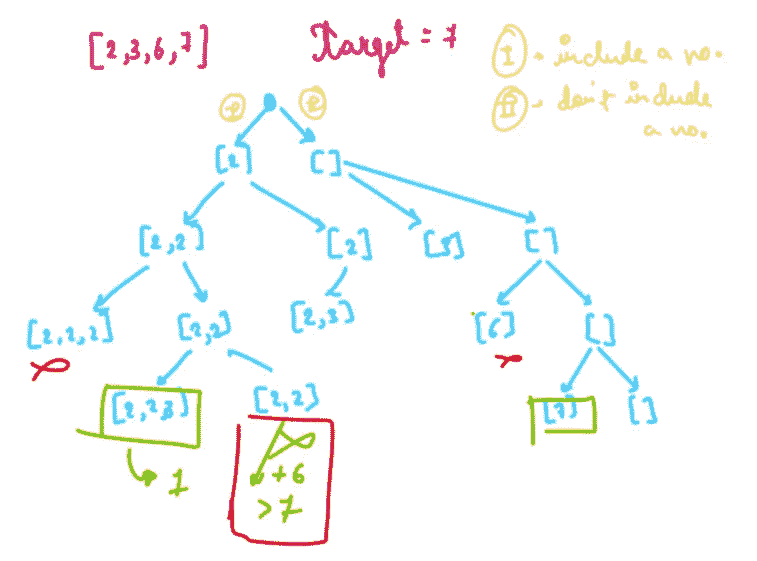 [2,3,6,7]
Target = 7
I - include a no.
II - don't include
a no.
[2]
[ ]
[2,2]
[2]
[3]
[ ]
[2,2,2]
[2,2]
[2,3]
[6]
[ ]
[2,2,3]
[2,2]
[7]
[ ]
1
+6
>7